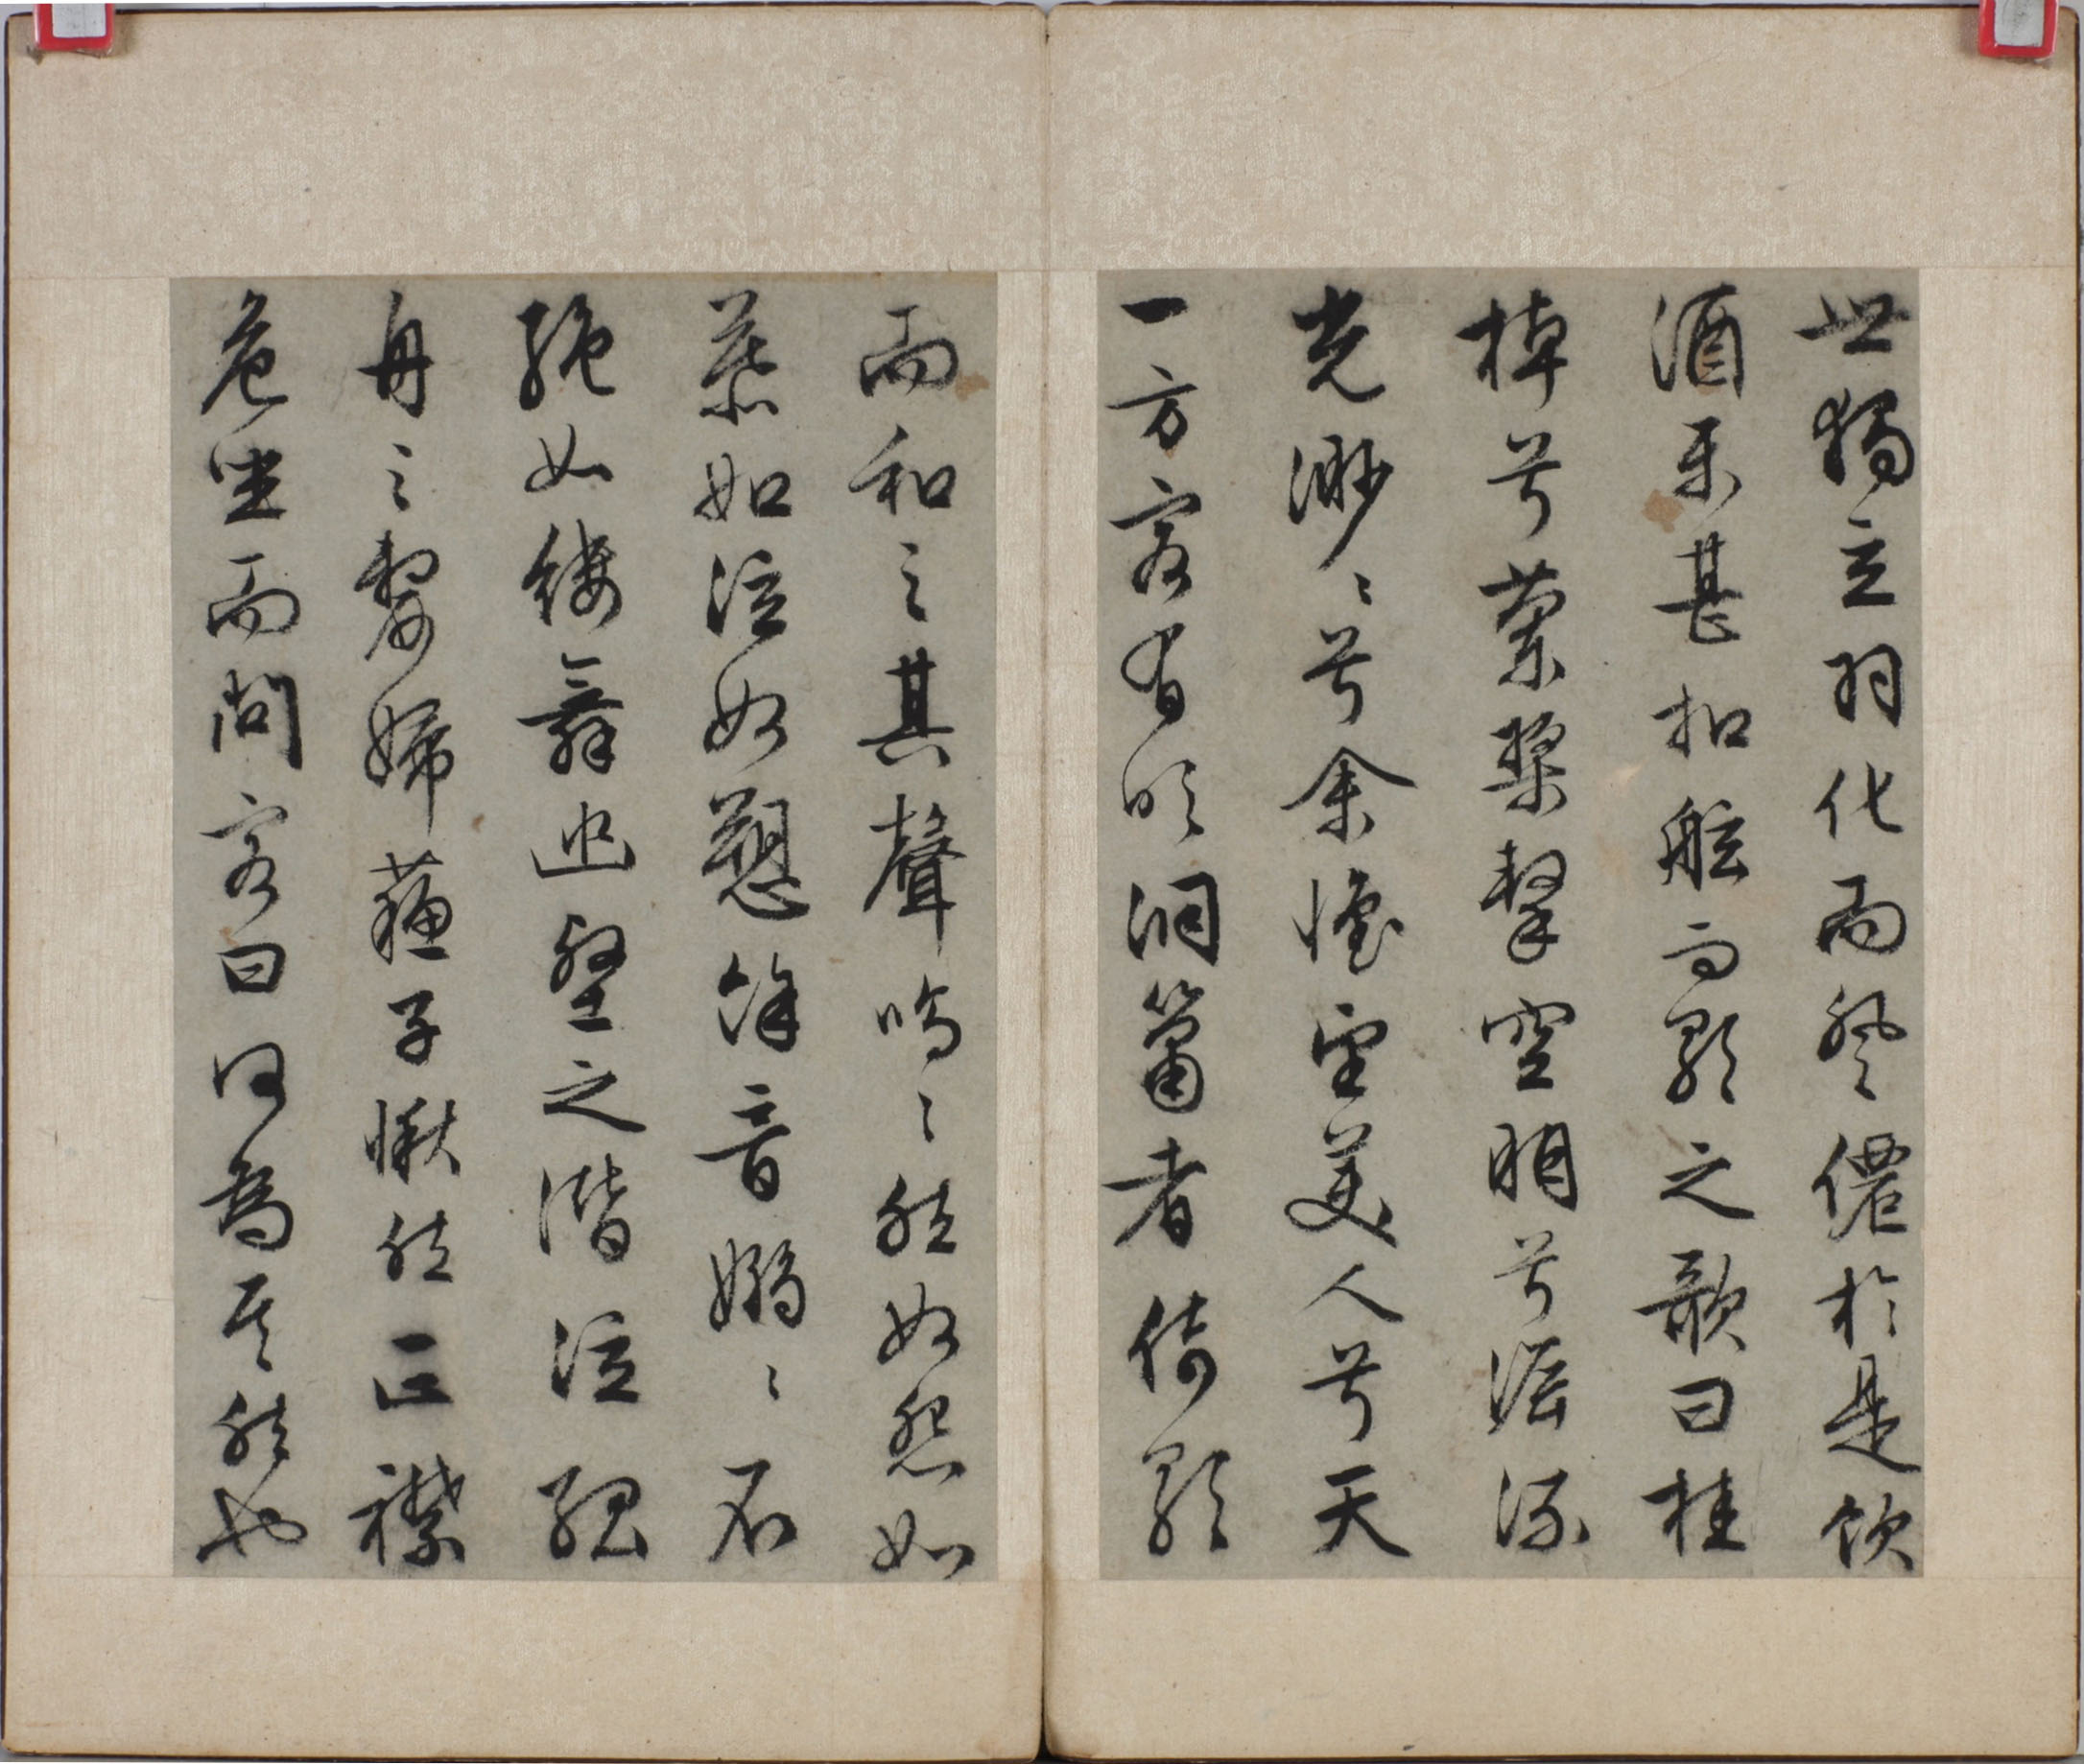 世獨立羽化而登僊於是飲
酒樂甚扣舷而歌之歌曰桂
棹兮蘭槳擊空明兮泝流
光渺〻兮余懷望美人兮天
一方客有吹洞簫者倚歌
而和之其聲嗚〻然如怨如
慕如泣如愬餘音嫋〻不
絕如縷舞幽壑之潛泣孤
舟之嫠婦蘇子愀然正襟
危坐而問客曰何為其然也